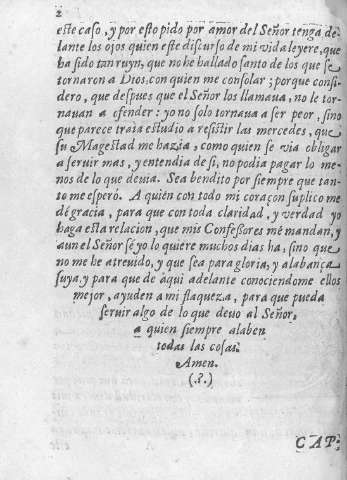 2
este caso, y por esto pido por amor del Señor tenga de-
lante los ojos quien este discurso de mi vida leyere, que
ha sido tan ruyn, que no he hallado santo de los que se
tornaron a Dios, con quien me consolar; porque consi-
dero, que despues que el Señor los llamaua, no le tor-
nauan a ofender: yo no solo tornaua a ser peor, sino
que parece traia estudio a resistir las mercedes, que
su Magestad me hazia, como quien se via obligar
a seruir mas, y entendia de si, no podia pagar lo me-
nos de lo que deuia. Sea bendito por siempre que tan-
to me esperó. A quien con todo mi coraçon suplico me
dé gracia, para que con toda claridad, y verdad yo
haga esta relacion, que mis Confesores me mandan, y
aun el Señor sé yo lo quiere muchos dias ha, sino que
no me he atreuido, y que sea para gloria, y alabança
suya, y para que de aqui adelante conociendome ellos
mejor, ayuden a mi flaqueza, para que pueda
seruir algo de lo que deuo al Señor,
a quien siempre alaben
todas las cosas.
Amen.
(.?.)
CAP.